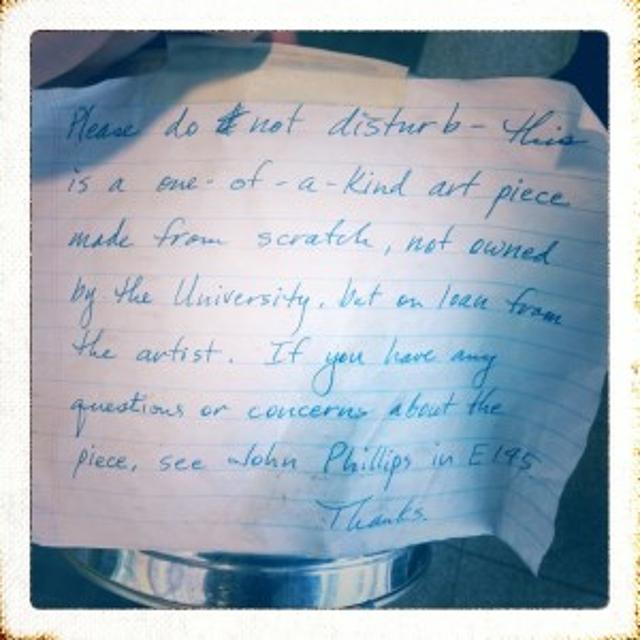 Please do not disturb - this
is a one-of-a-kind art piece
made from scratch, not owned
by the University, but on loan from
the artist. If you have any
questions or concerns about the
piece, see John Phillips in E195
Thanks.